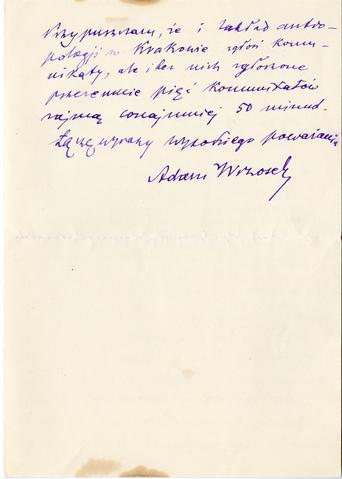 Przypuszczam, że i Zakład antro-
pologji w Krakowie zgłosi komu-
nikaty, ale i bez nich zgłoszone
przezemnie pięć komunikatów
zajmą conajmniej 50 minut.
Łączę wyrazy wysokiego poważania
Adam Wrzosek